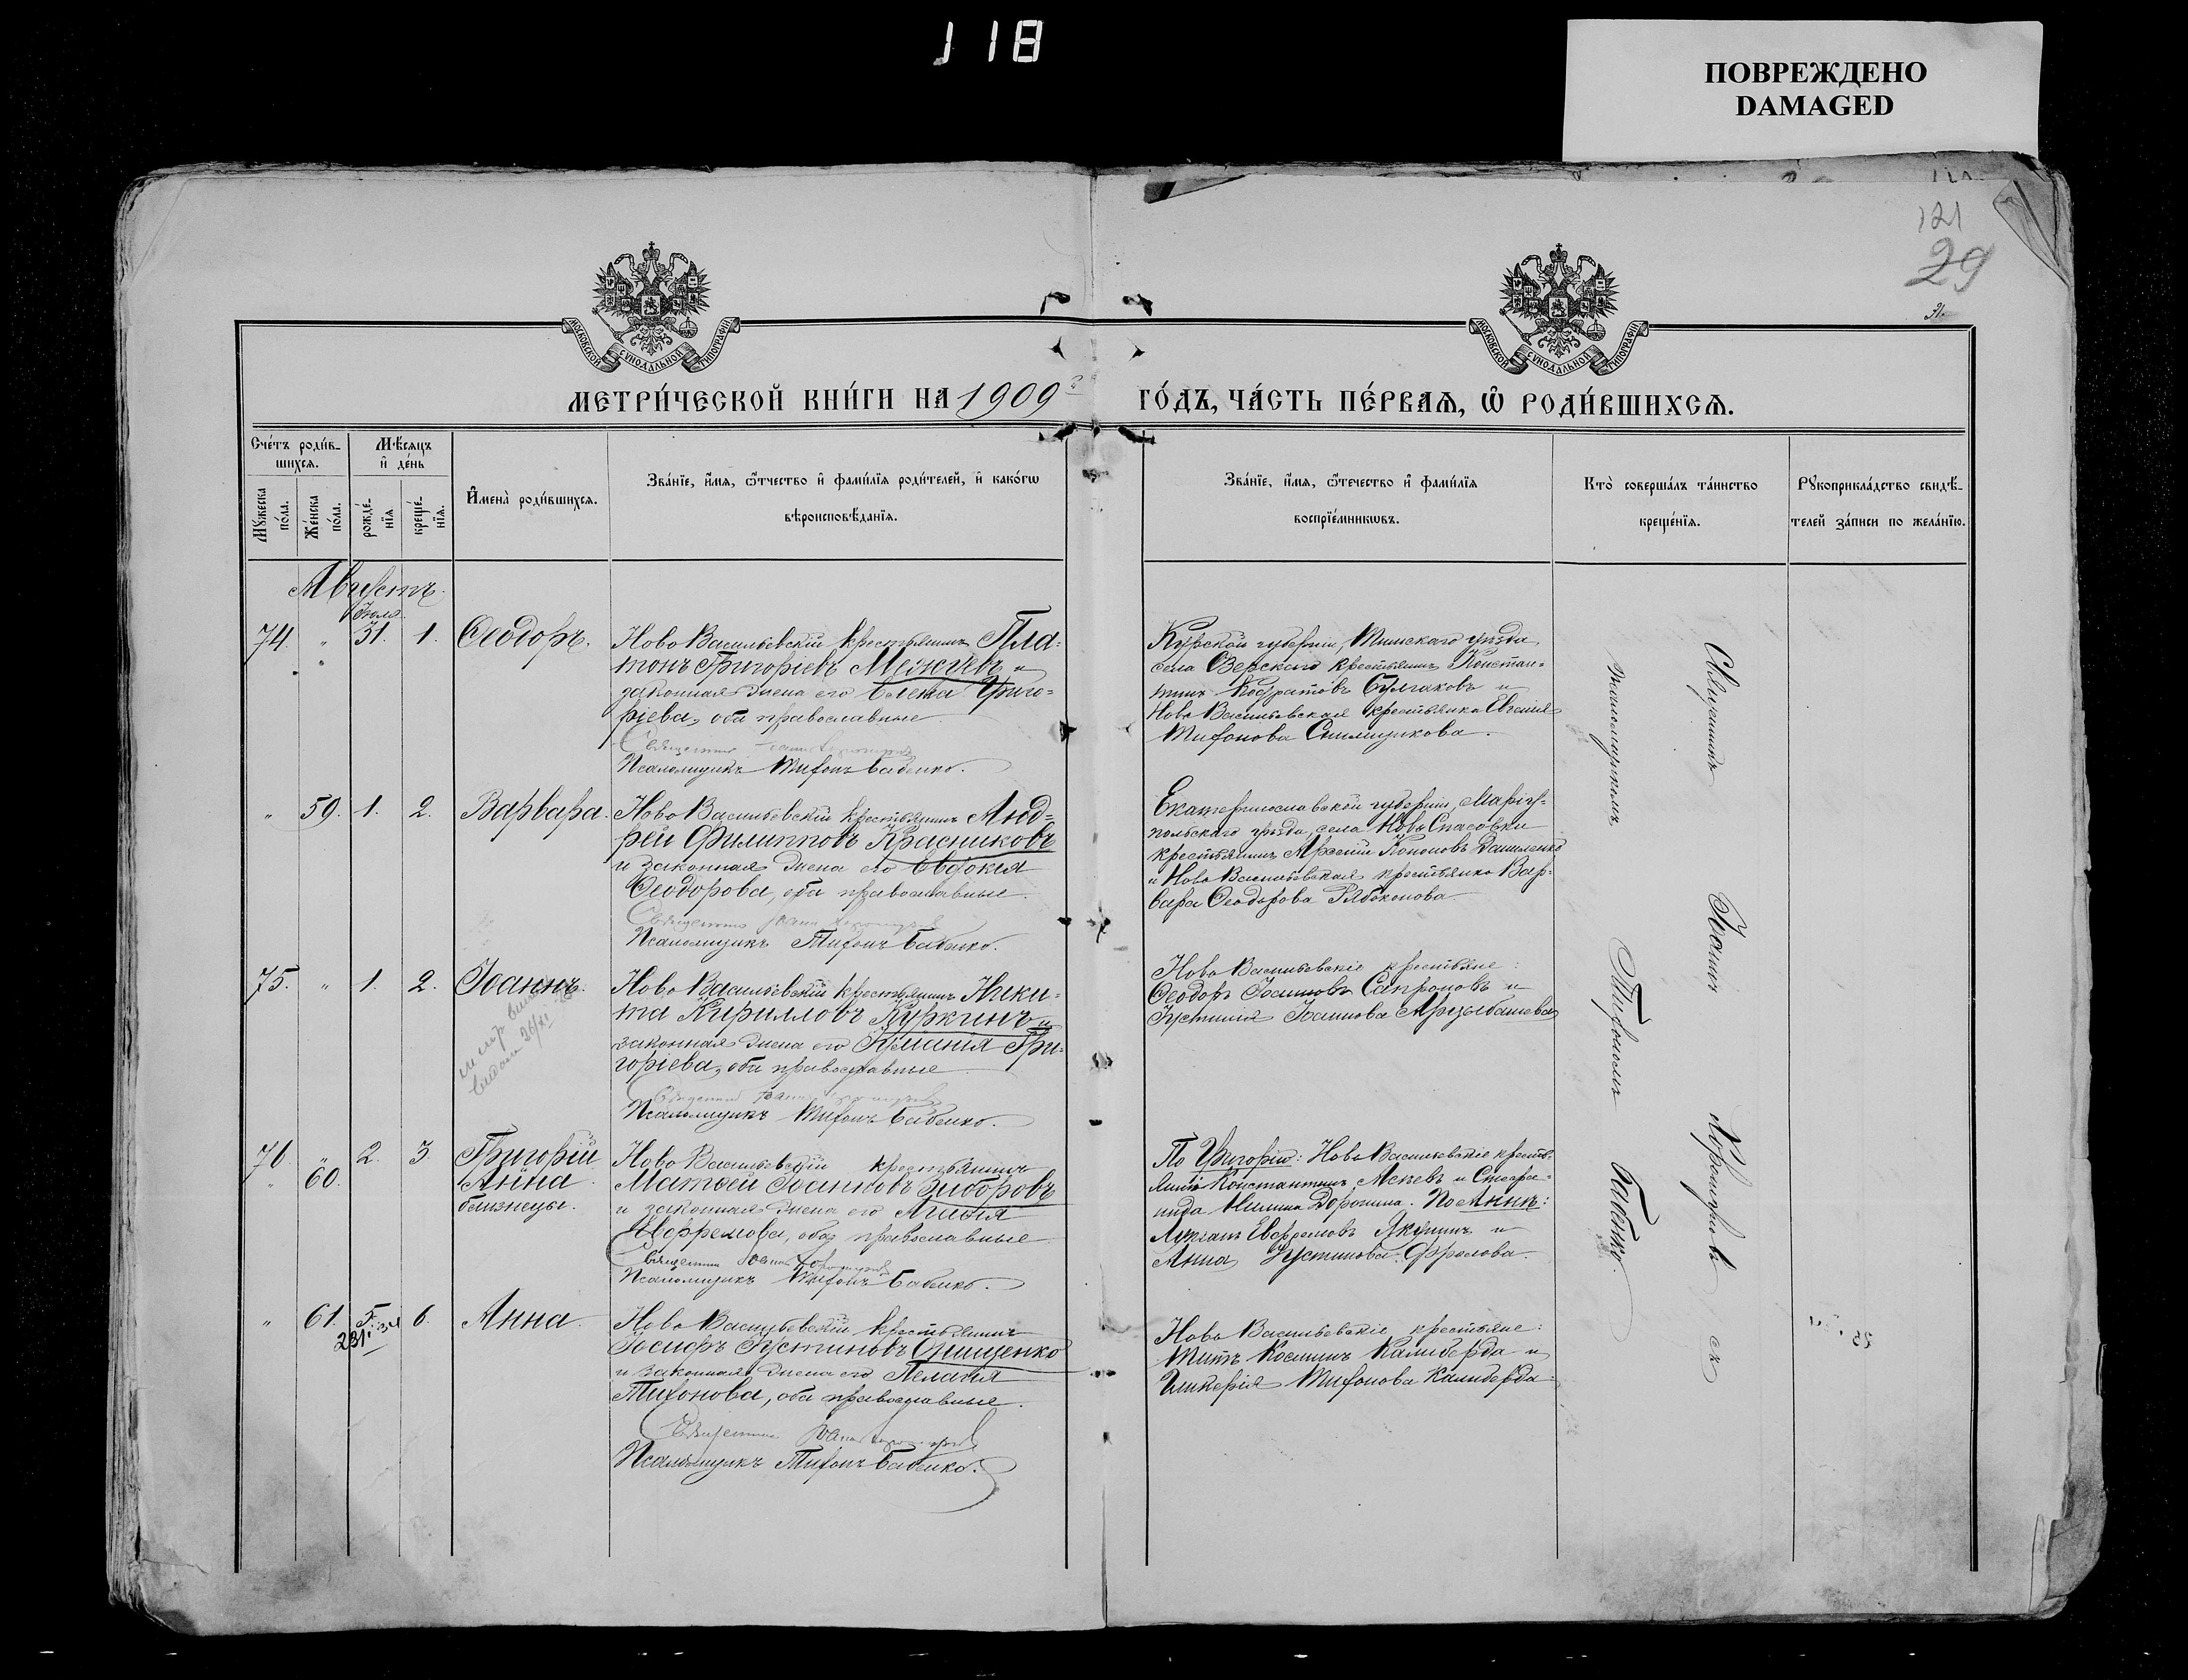 118
ПОВРЕЖДЕНО
DAMAGED
121
29
31.
МОСКОВСКОЙ СѴНОДАЛЬНОЙ ТИПОГРАФІИ
МОСКОВСКОЙ СѴНОДАЛЬНОЙ ТИПОГРАФІИ
МЕТРИ́ЧЕСКОЙ КНИ́ГИ НА 1909 ГО́ДЪ, ЧА́СТЬ ПЕ́РВАѦ, Ѡ РОДИ́ВШИХСѦ.
Сче́тъ роди́в-
шихсѧ.
Мꙋ́жеска по́ла.
Же́нска по́ла.
Мѣ́сѧцъ
и҆ де́нь
рожде́-
нїѧ
креще́-
нїѧ.
И҆мена̀ роди́вшихсѧ.
Зва́нїе, и҆́мѧ, ѻ҆́тчество и҆ фами́лїѧ роди́телей, и҆ како́гѡ
вѣроисповѣ́данїѧ.
Зва́нїе, и҆́мѧ, ѻ҆те́чество и҆ фами́лїѧ
воспрїе́мникѡвъ.
Кто̀ соверша́лъ та́инство
креще́нїѧ.
Рꙋкоприкла́дство свидѣ́-
телей за́писи по жела́нїю.
Августъ.
Іюля
74. " 31. 1. Ѳеодоръ.
Ново Васильевскій крестьянинъ Пла=
тонъ Григорьевъ Межуевъ и
законная жена его Елена Григо=
рьева, оба православные
Священникъ Іоаннъ
Псаломщикъ Тихонъ Бабенко.
Курской губерніи, Тимскаго уѣзда
села Озерскаго крестьянинъ Констан=
тинъ Кодратовъ Булгаковъ и
Ново Васильевская крестьянка Евгенія
Тихонова
" 59. 1. 2. Варвара.
Ново Васильевскій крестьянинъ Анд=
рей Филипповъ Красниковъ
и законная жена его Евдокія
Ѳеодорова, оба православные.
Священникъ Іоаннъ
Псаломщикъ Тихонъ Бабенко.
Екатеринославской губерніи, Маріу=
польскаго уѣзда, села Ново Спасовки
крестьянинъ Арсеній Кононовъ Даниленко
и Ново Васильевская крестьянка Вар=
вара Ѳеодорова Рябоконова
75. " 1. 2. Іоаннъ.
Ново Васильевскій крестьянинъ Ники=
та Кирилловъ Куркинъ и
законная жена его Іуліанія Гри=
горьева, оба православные
Священникъ Іоаннъ
Псаломщикъ Тихонъ Бабенко.
Ново Васильевскіе крестьяне:
Ѳеодоръ Іоанновъ Сапроновъ и
Іустинія Іоаннова Арцыбашева
76. " 2. 3. Григорій
" 60. Анна
близнецы.
Ново Васильевскій крестьянинъ
Матѳей Іоанновъ Зиборовъ
и законная жена его Агаѳія
Евфремова, оба православные
Священникъ Іоаннъ
Псаломщикъ Тихонъ Бабенко.
По Григорію: Ново Васильевскіе крестья
Константинъ и Стефа=
нида Дорохина. По Аннѣ:
Лукіанъ Евфремовъ Якунинъ и
Анна Іустинова Фролова.
" 61. 5. 6. Анна.
Ново Васильевскій крестьянинъ
Іосифъ Іустиновъ Онищенко
и законная жена его Пелагія
Тихонова, оба православные.
Священникъ Іоаннъ
Псаломщикъ Тихонъ Бабенко.
Ново Васильевскіе крестьяне:
Титъ Косминъ Калиберда и
Гликерія Тихонова Калиберда.
Священникъ Іоаннъ съ
псаломщикомъ Тихономъ Бабенко.